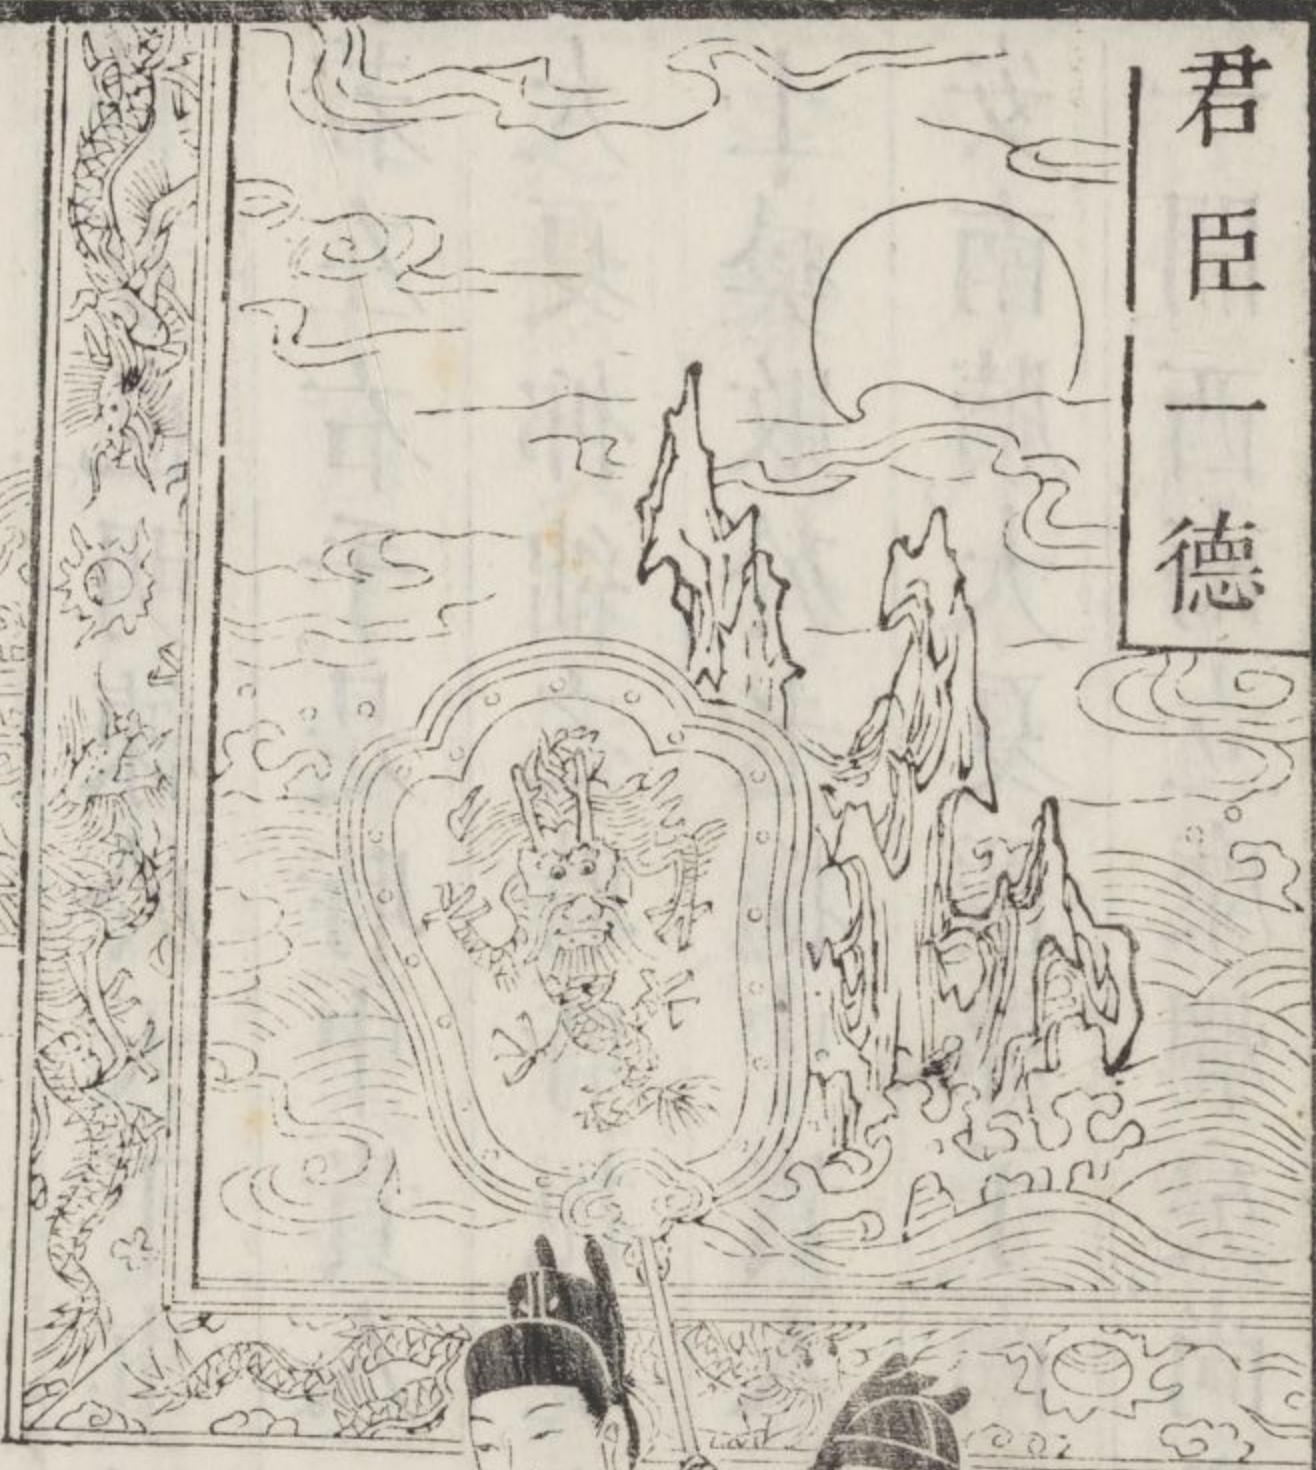 君臣一德